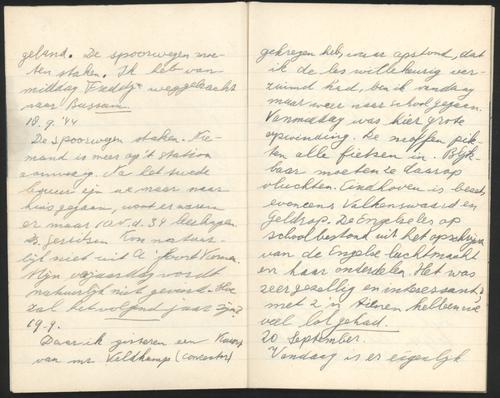 geland. De spoorwegen moe-
ten staken. Ik heb van-
middag Freddy weggebracht
naar Bussum.
18.9.'44
De spoorwegen staken. Nie-
mand is meer op 't station
aanwezig. Na het twede
lesuur zijn we maar naar
huis gegaan, want er waren
er maar 10 v.d. 34 leerlingen
Gerritsen kon natuur-
lijk niet uit A'foort komen.
Mijn verjaardag wordt
natuurlijk niet gevierd. Hoe
zal het volgend jaar zijn?
19-9.
Daar ik gisteren een
van mr Veldkamp (conrector)
gekregen heb, waar opstond, dat
ik de les willekeurig ver-
zuimd had, ben ik vandaag
maar weer naar school gegaan.
Vanmiddag was hier grote
opwinding. De moffen pik-
ten alle fietsen in. Blijk-
baar moeten ze daarop
vluchten. Eindhoven is bezet,
evenzeens Valkenswaard en
Geldrop. De Engelse les op
school bestond uit het opschrijven
van de Engelse luchtmacht
en haar onderdelen. Het was
zeer gezellig en interessant,
met z'n tienen hebben we
veel lol gehad.
20 September.
Vandaag is er eigenlijk